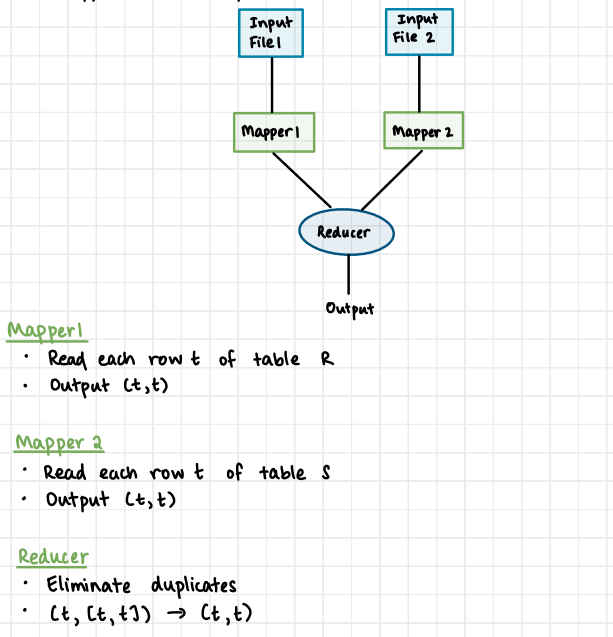 Input
File 1
Input
File 2
Mapper 1
Mapper 2
Reducer
Output
Mapper 1
· Read each row t of table R
· Output (t,t)
Mapper 2
· Read each row t of table S
· Output (t,t)
Reducer
· Eliminate duplicates
· (t, [t, t]) → (t, t)